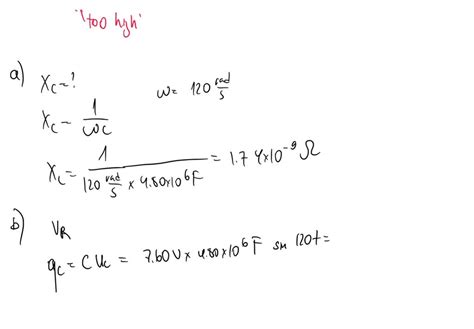 "too high"
a) X_C = ?
ω = 120 rad/s
X_C = 1/ωC
X_C = 1/(120 rad/s × 4.80×10^6 F) = 1.74×10^-9 Ω
b) V_R
q_C = C V_C = 7.60 V × 4.80×10^6 F sin 120t =